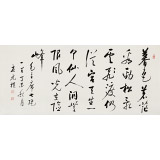 暮色苍茫
看劲松乱
云飞渡仍
从容天生一
个仙人洞无
限风光在险
峰
毛主席七绝
一首